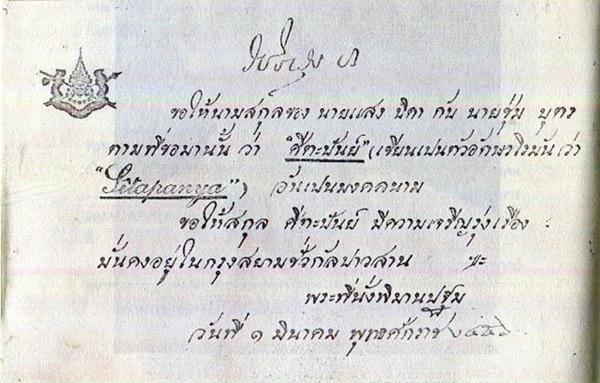 ขอให้นามสกุลของ นายแสง บิดา กับ นายชุ่ม บุตร
ตามที่ขอมานั้น ว่า "สีตะปันย์" (เขียนเป็นตัวอักษรโรมันว่า
"Sêtapanya") อันเป็นมงคลนาม
ขอให้สกุล สีตะปันย์ มีความเจริญรุ่งเรือง
มั่นคงอยู่ในกรุงสยามชั่วกัลปาวสาน
พระที่นั่งพิมานปฐม
วันที่ ๑ มีนาคม พุทธศักราช